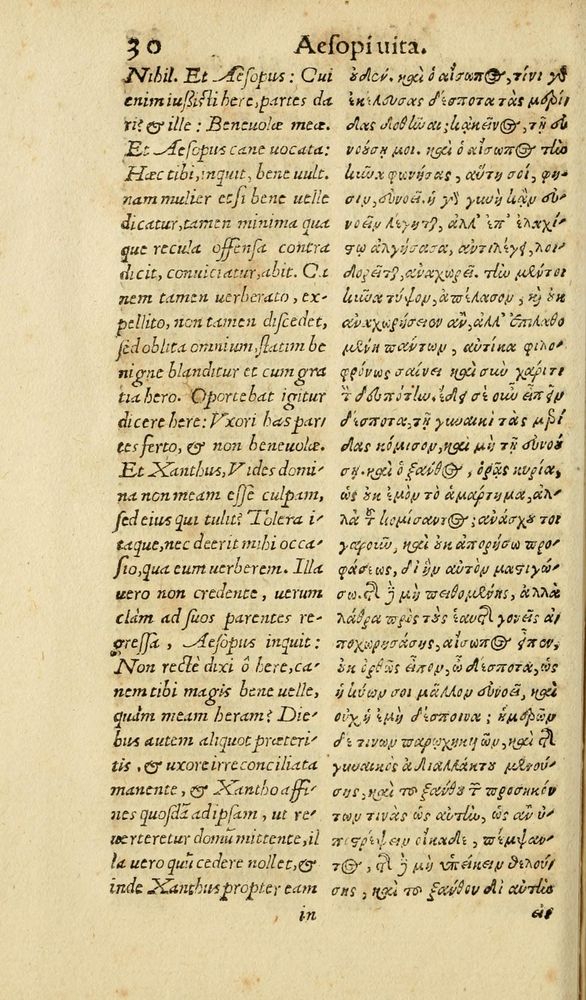 30 Aesopi uita.
Nihil. Et Aesopus: Cui
enim iussisti here, partes da
ri? & ille: Beneuolæ meæ.
Et Aesopus cane uocata:
Hæc tibi, inquit, bene uult.
nam mulier etsi bene uelle
dicatur, tamen minima qua
que recula offensa contra
dicit, conuiciatur, abit. Ca
nem tamen uerberato, ex-
pellito, non tamen discedet,
sed oblita omnium, statim be
nigne blanditur et cum gra
tia hero. Oportebat igitur
dicere here: Vxori has par
tes ferto, & non beneuolæ.
Et Xanthus, Vides domi-
na non meam esse culpam,
sed eius qui tulit? Tolera i-
taque, nec deerit mihi occa-
sio, qua eum uerberem. Illa
uero non credente, uerum
clàm ad suos parentes re-
gressa, Aesopus inquit:
Non rectè dixi ô here, ca-
nem tibi magis bene uelle,
quàm meam heram? Die-
bus autem aliquot præteri-
tis, & uxore irreconciliata
manente, & Xantho affi-
nes quosdã ad ipsam, ut re-
uerteretur domũ mittente, il
la uero quũ cedere nollet, &
inde Xanthus propter eam
in
οὐδέν. καὶ ὁ αἴσωπος, τίνι γὰρ
ἐκέλουσας δέσποτα τὰς μερί-
δας δοθῶαι; κἀκεῖνος, τῇ εὐ
νούσῃ μοι. καὶ ὁ αἴσωπος τὴν
κύνα φωνήσας, αὕτη σοί, φη-
σιν, εὐνοεῖ. ἡ γὸ γυνὴ κἂν εὐ
νοεῖν λέγηται, ἀλλ' ἐπ' ἐλαχί-
στῳ ἀλγήσασα, ἀντιλέγει, λοι-
δορεῖται, ἀναχωρεῖ. τὴν μέντοι
κύνα τύψον, ἀπέλασον, καὶ οὐκ
ἀναχωρήσειεν ἄν, ἀλλ' ἐπιλαθο
μένη πάντων, αὐτίκα φιλο-
φρόνως σαίνει καὶ σὺν χάριτι
τὸν δεσπότην. ἔδει σε οὖν εἰπεῖν
δέσποτα, τῇ γυναικὶ τὰς μερί
δας κόμισον, καὶ μὴ τῇ εὐνού
σῃ. καὶ ὁ ξανθος, ὁρᾷς κυρία,
ὡς οὐκ ἐμὸν τὸ ἁμάρτημα, ἀλ-
λὰ τοῦ κομίσαντος; ἀνάσχου τοι
γαροῦν, καὶ οὐκ ἀπορήσω προ-
φάσεως, δι' ἣν αὐτὸν μαστιγώ-
σω. τῆς δὲ μὴ πειθομένης, ἀλλὰ
λάθρα πρὸς τοὺς ἑαυτῆς γονεῖς ἀ-
ποχωρησάσης, αἴσωπος εἶπεν,
οὐκ ὀρθῶς εἶπον, ὦ δέσποτα, ὡς
ἡ κύων σοι μᾶλλον εὐνοεῖ, καὶ
οὐχ ἡ ἐμὴ δέσποινα; ἡμερῶν
δέ τινων παρῳχηκυιῶν, καὶ τῆς
γυναικὸς ἀδιαλλάκτου μενού-
σης, καὶ τοῦ ξάνθου τῶν προσηκόν
των τινὰς ὡς αὐτὴν, ὡς ἂν ὑ-
ποστρέψειεν οἴκαδε, πέμψαν-
τος, τῆς δὲ μὴ ὑπείκειν θελού-
σης, καὶ τοῦ ξάνθου δι' αὐτὴν
εἰς